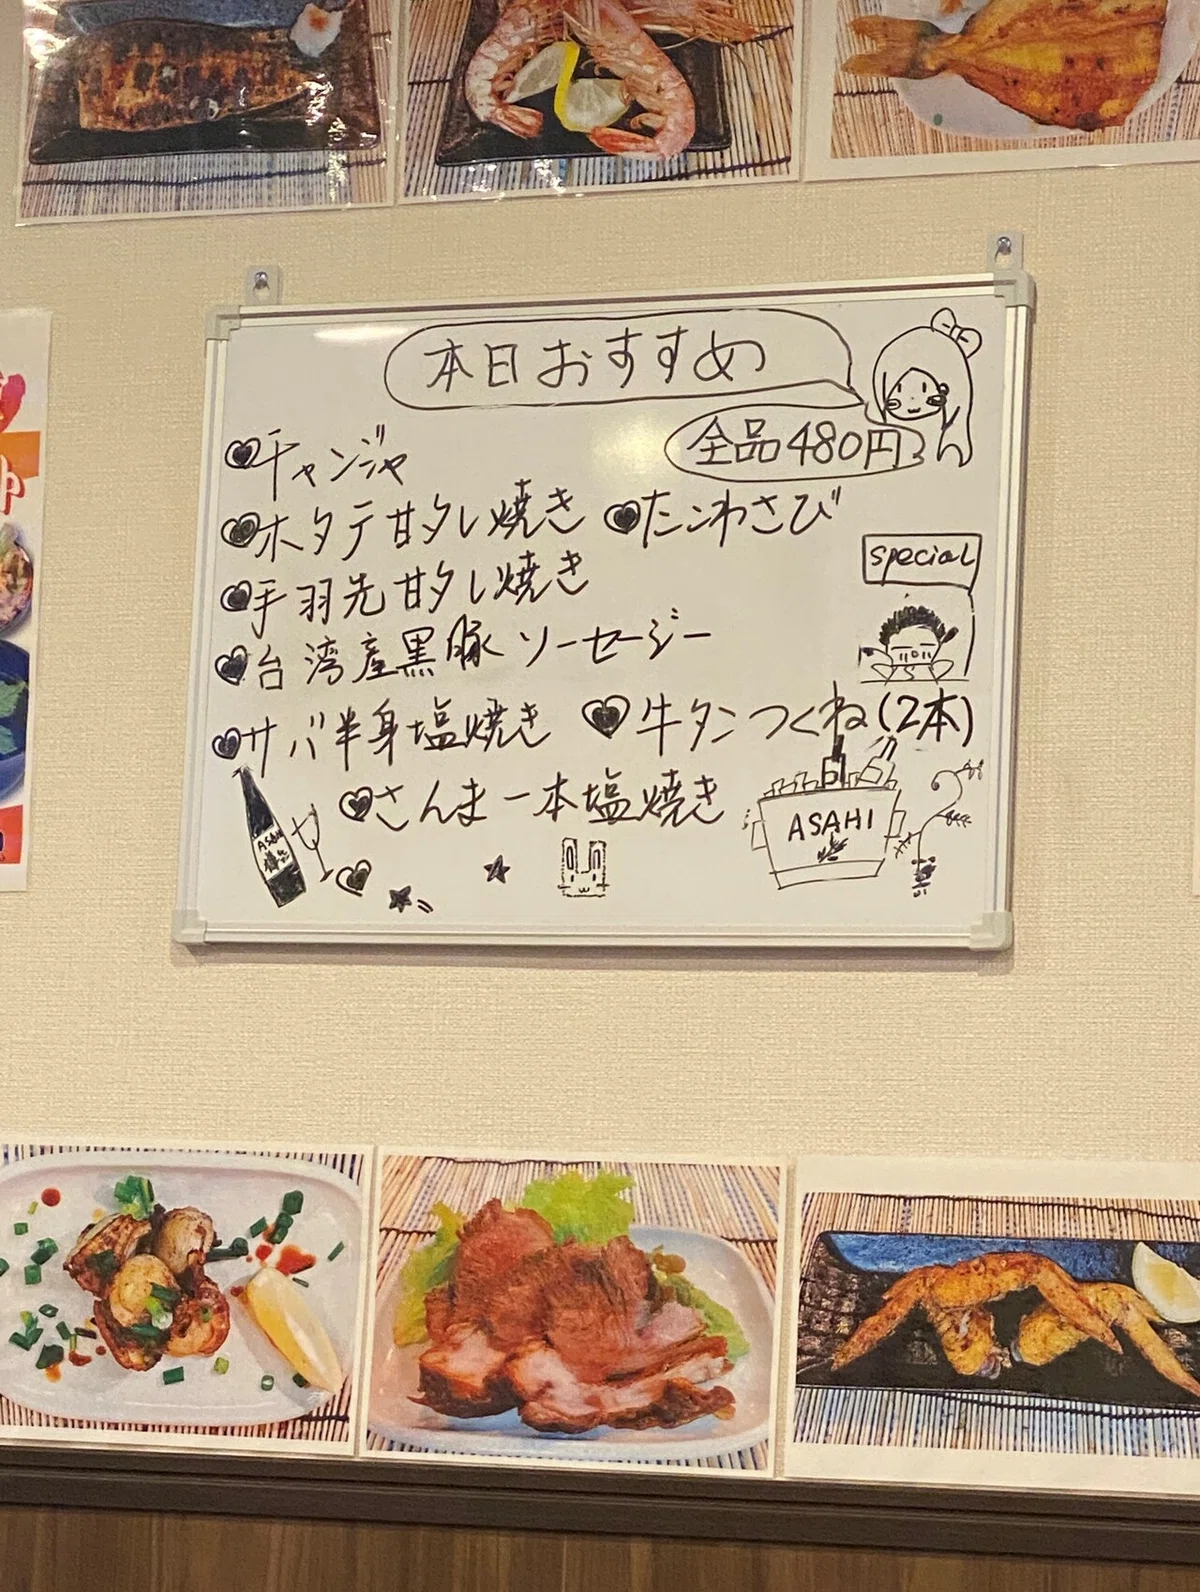 本日おすすめ
全品480円
チャンジャ
ホタテ甘タレ焼き
たこわさび
手羽先甘タレ焼き
special
台湾産黒豚ソーセージー
サバ半身塩焼き
牛タンつくね(2本)
さんま一本塩焼き
ASAHI
ASAHI